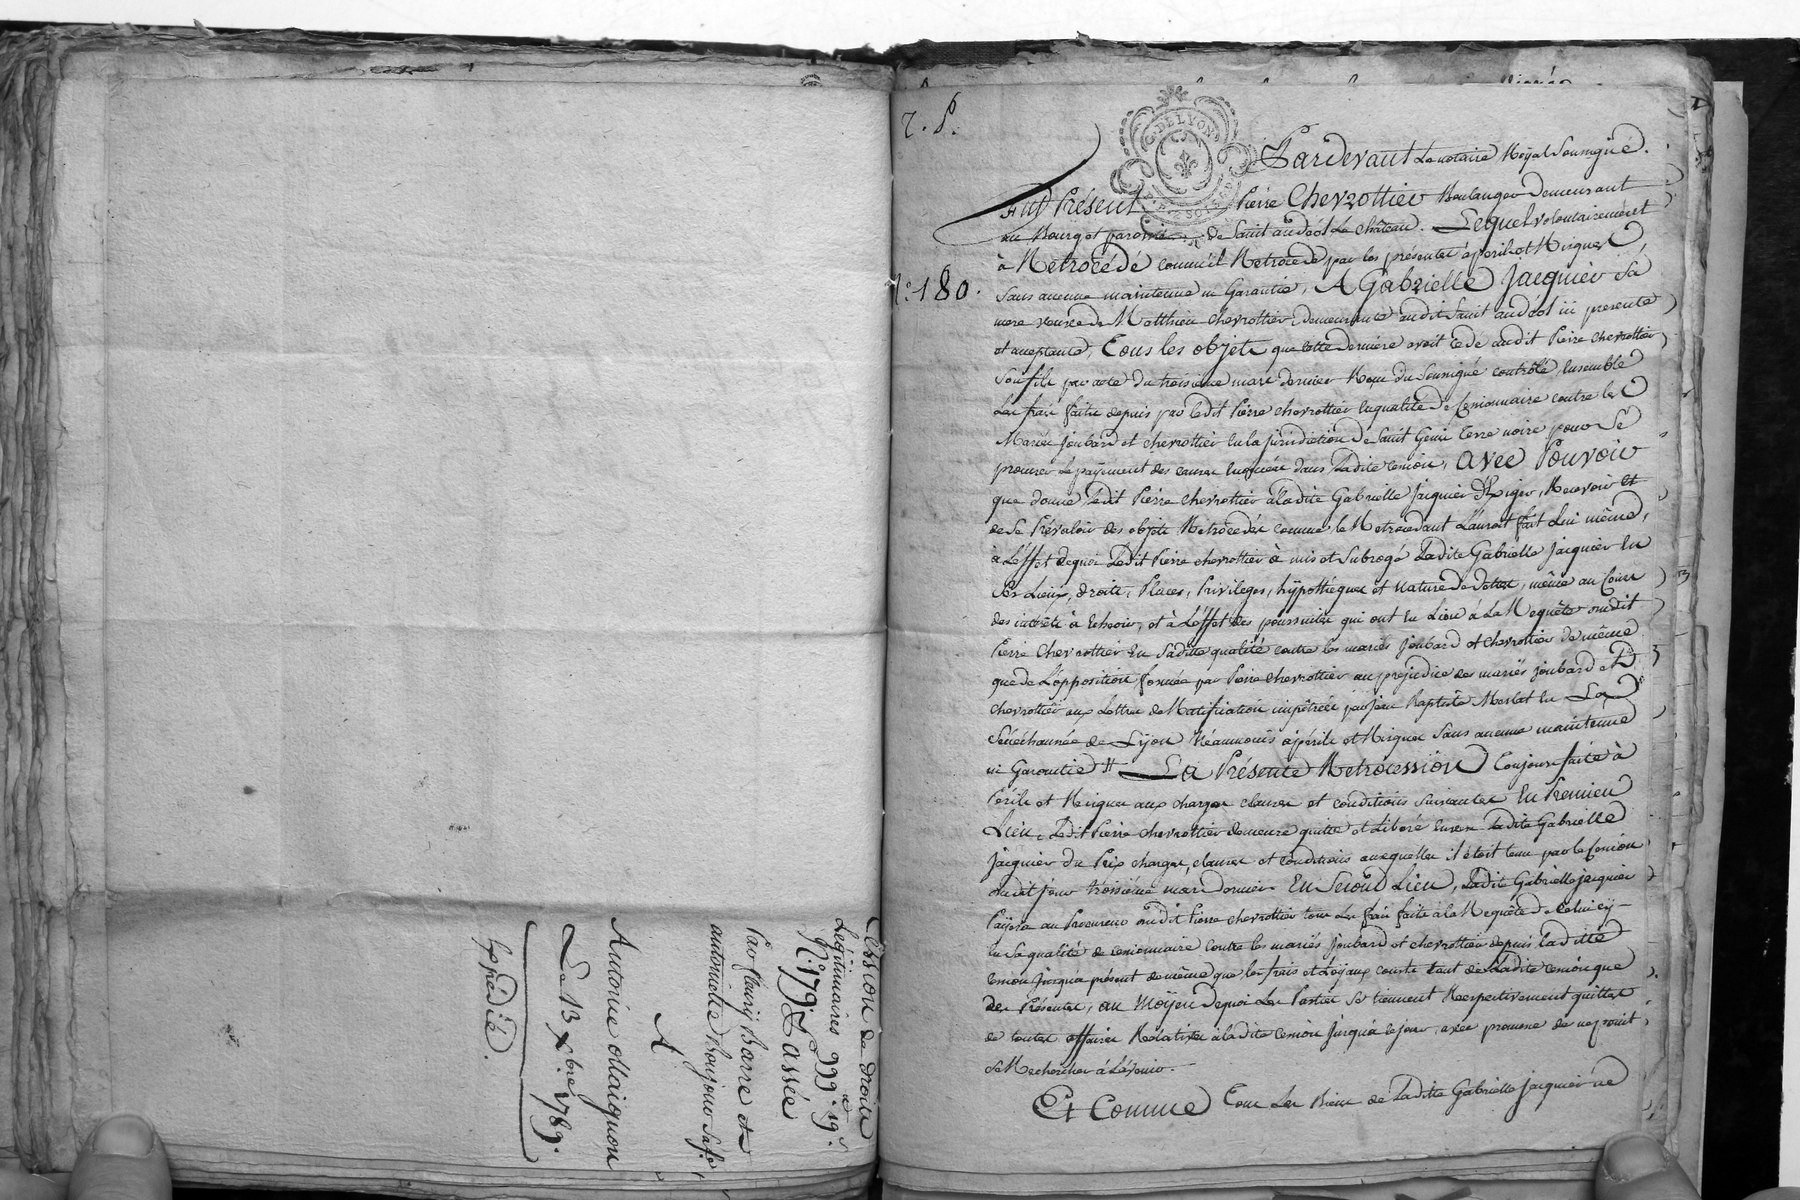 Cession de droits
Legitimaires 999.# 19.s
N.° 179 Passée
Par fleury Barre et
antoinette Boujour Sa f.e
A
Antoine Maignon
Le 13 x.bre 1789.
Expédié.
2. S.
DE LYON
N.° 180.
Pardevant Le notaire Royal Soussigné.
fut Présent Pierre Chevrottier Boulanger demeurant
au Bourg et paroisse de Saint andéol Le château. Lequel volontairement
à Retrocédé comme il Retrocede par les présentes à perils et Risques
Sans aucune maintenue ni Garantie, A Gabrielle Jacquier Sa
mere veuve de Matthieu chevrottier demeurante audit Saint andéol ici presente
et acceptante, Tous les objets que cette derniere avoit cédé audit Pierre chevrottier
Son fils par acte du troisieme mars dernier Reçu du Soussigné contrôlé, Ensemble
Les frais faits depuis par ledit Pierre chevrottier En qualité de Cessionnaire contre les
Mariés Joubard et chevrottier En la Jurisdiction de Saint Genis terre noire pour Se
procurer Le payement des causes Enoncées dans Ladite cession, avec Pouvoir
que donne Ledit Pierre chevrottier à ladite Gabrielle Jacquier d'Exiger, Recevoir et
de Se Prévaloir des objets Retrocédés comme le Retrocedant L'auroit fait Lui même,
à L'effet de quoi Ledit Pierre chevrottier à mis et Subrogé Ladite Gabrielle Jacquier En
Ses Lieux, droits, Places, Privileges, hypothéques et Nature de dettes, même au Cours
des intérêts à Echeoir, et à L'effet des poursuites qui ont Eu Lieu à La Requête dudit
Pierre Chevrottier En Saditte qualité contre les mariés Joubard et chevrottier de même
que de L'opposition formée par Pierre chevrottier au préjudice des mariés joubard et
chevrottier aux Lettres de Ratification impétrées par Jean Baptiste Merlat En La
Sénéchaussée de Lyon Néanmoins à périls et Risques Sans aucune maintenue
ni Garantie # La Présente Retrocession Toujours faite à
Périls et Risques aux charges clauses et conditions Suivantes En Premier
Lieu, Ledit Pierre chevrottier demeure quitte et Liberé Envers Ladite Gabrielle
Jacquier du Prix charges, clauses et conditions auxquelles il étoit tenu par la Cession
dudit jour troisième mars dernier. En Second Lieu, Ladite Gabrielle jacquier
Payera au Procureur dudit Pierre chevrottier tous Les frais faits à la Requête de Celui cy
En Sa qualité de cessionnaire contre les mariés Joubard et chevrottier depuis Laditte
cession Jusqu'à présent de même que les frais et Loyaux couts tant de Ladite cession que
des Présentes, au moyen de quoi Les Parties Se tiennent Respectivement quittes
de toutes affaires Relatives à ladite cession Jusqu'à ce jour, avec promesse de ne point
Se Rechercher à L'avenir.
Et Comme Tous Les Biens de Laditte Gabrielle jacquier ne